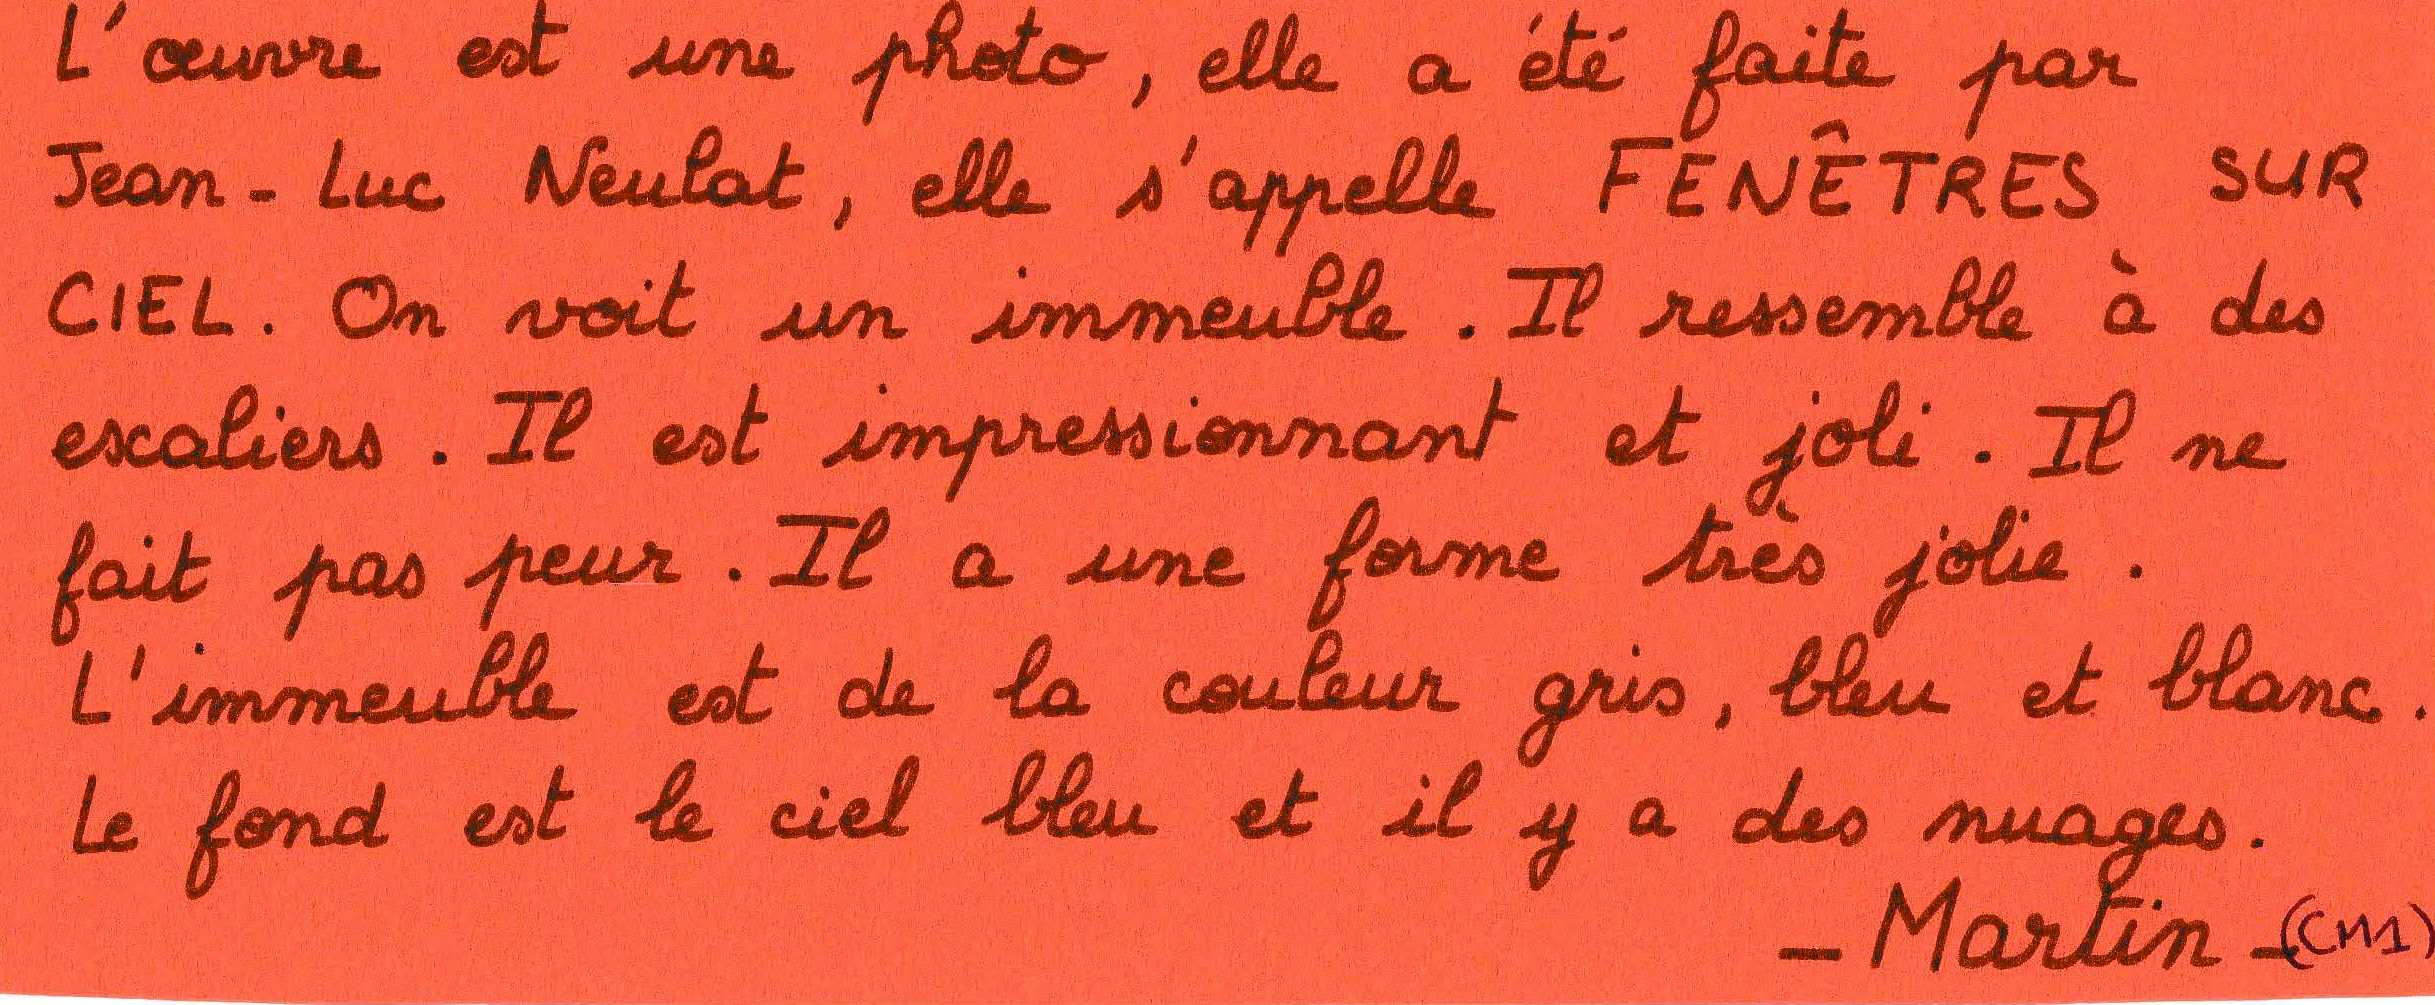 L'œuvre est une photo, elle a été faite par
Jean-Luc Neulat, elle s'appelle FENÊTRES SUR
CIEL. On voit un immeuble. Il ressemble à des
escaliers. Il est impressionnant et joli. Il ne
fait pas peur. Il a une forme très jolie.
L'immeuble est de la couleur gris, bleu et blanc.
Le fond est le ciel bleu et il y a des nuages.
- Martin - (CM1)